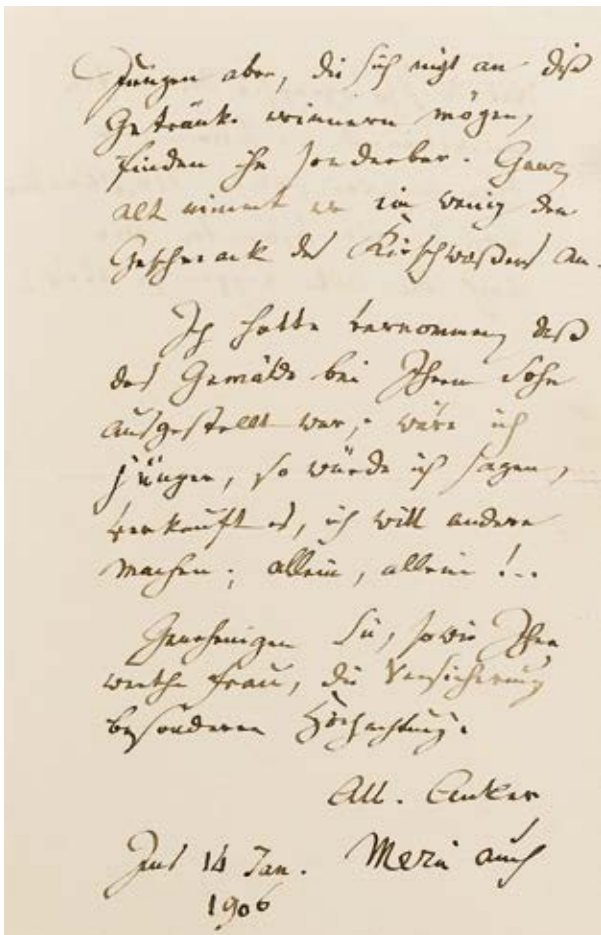 Jungen aber, die sich nicht an dise
Getränke erinnern mögen,
finden ihn sonderbar. Ganz
alt nimmt er ein wenig den
Geschmack des Kirschwaßers an.
Ich hatte vernommen, daß
das Gemälde bei Ihrem Sohn
ausgestellt war; wäre ich
jünger, so würde ich sagen,
verkauft es, ich will andere
machen; allein, allein !..
Genehmigen Sie, sowie Ihre
werthe Frau, die Versicherung
besonderer Hochachtung.
Alb. Anker
Ins 14 Jan. Merci auch
1906